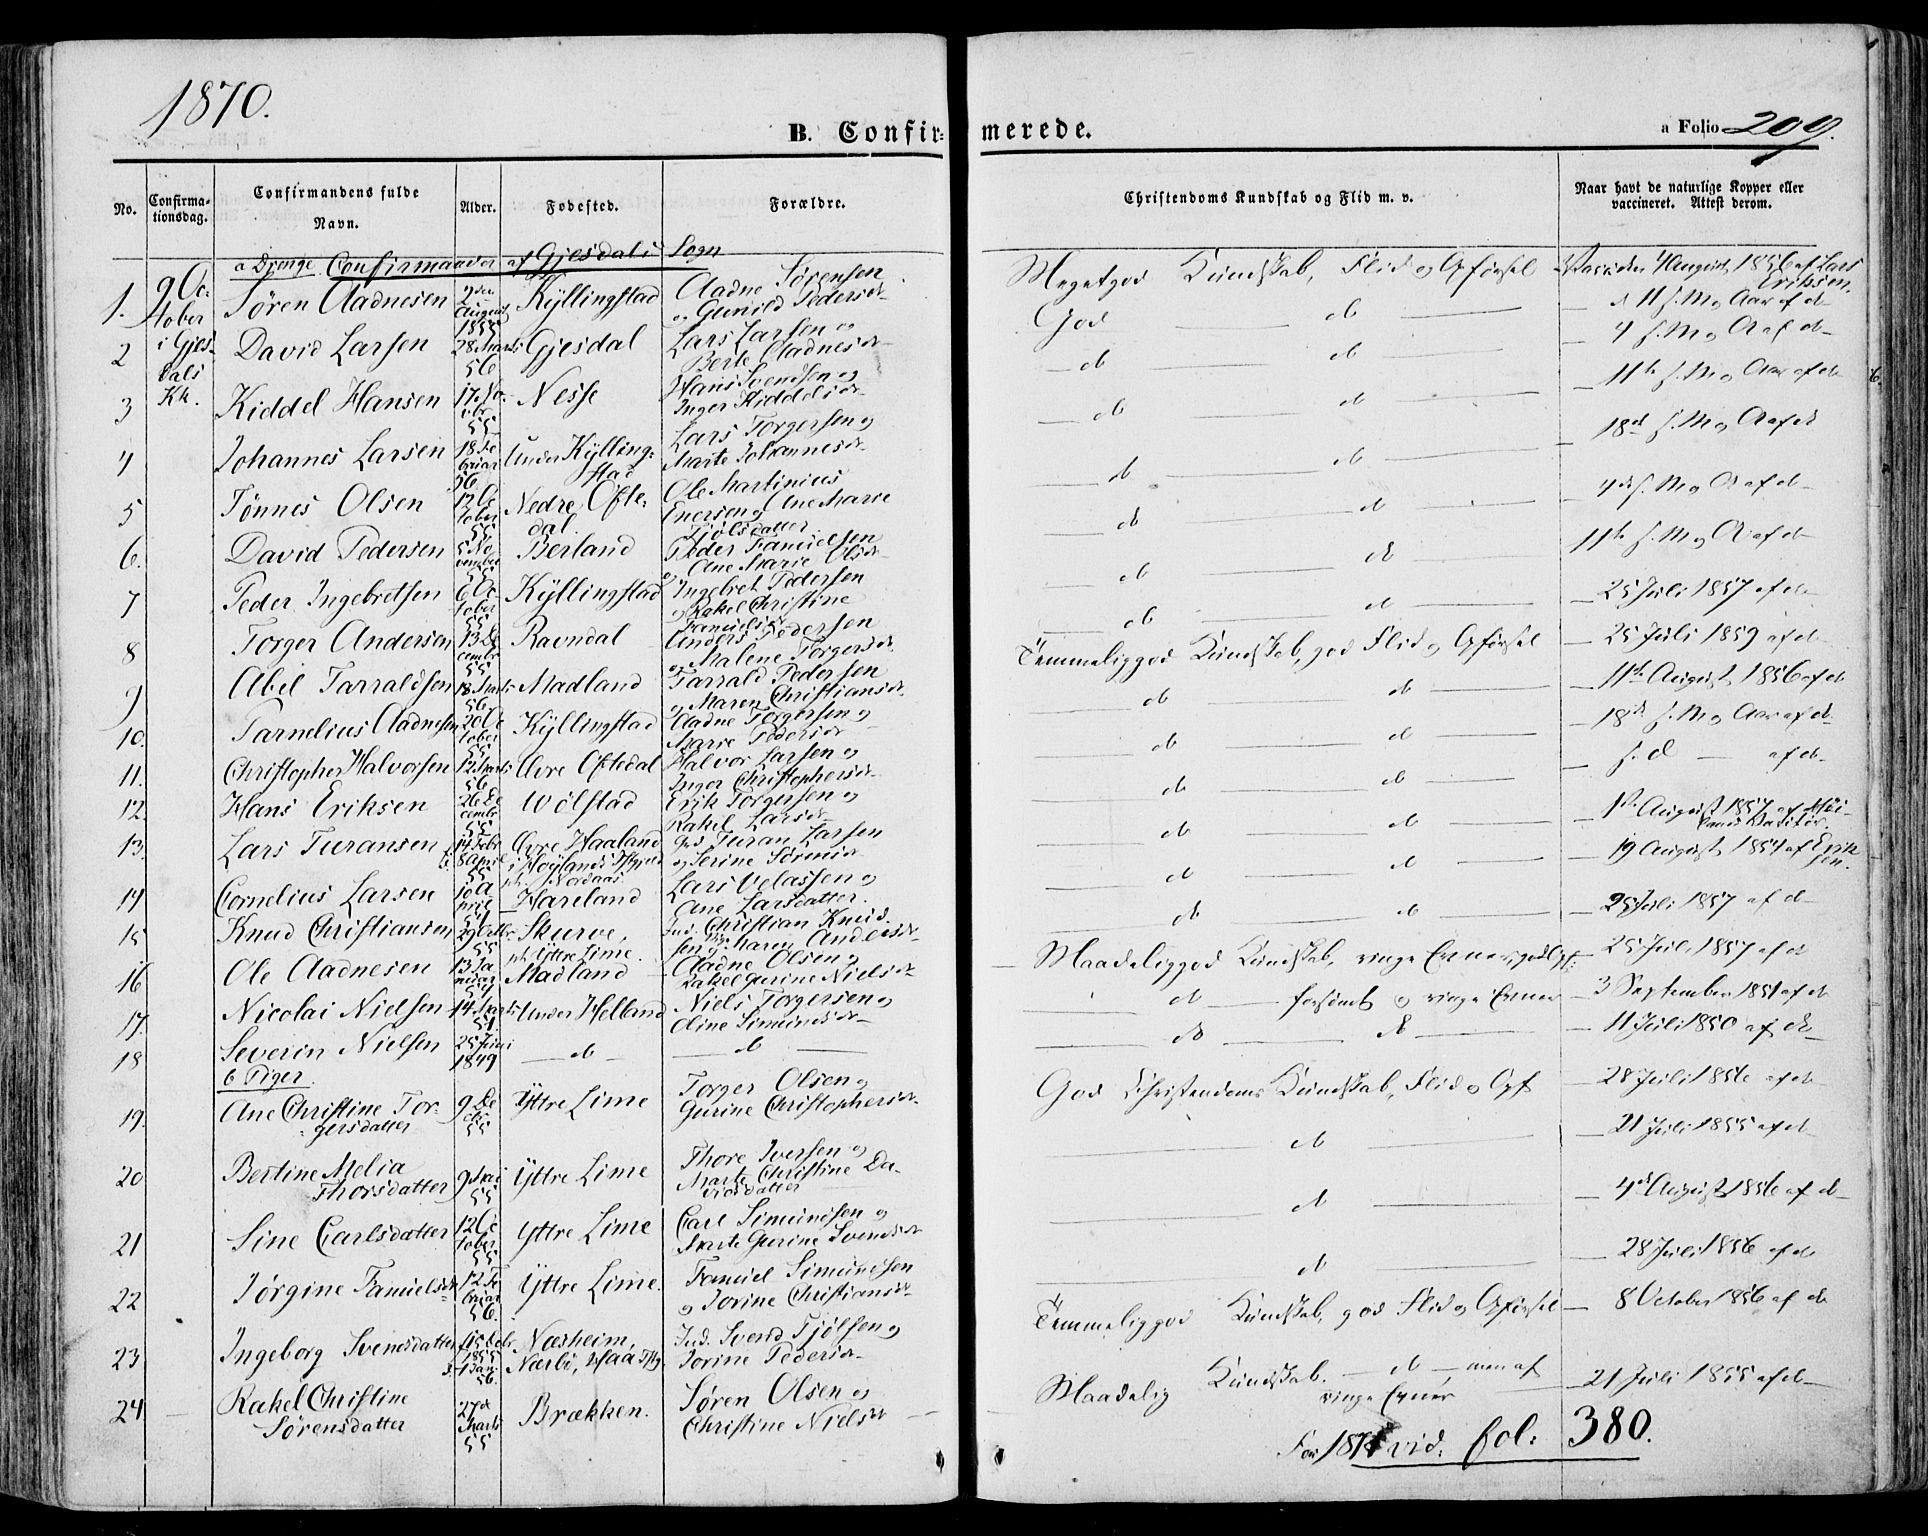 1870.
B. Confir=
merede.
a Folio 209.
No.
Confirma-
tionsdag.
Confirmandens fulde
Navn.
Alder.
Fødested.
Forældre.
Christendoms Kundskab og Flid m. v.
Naar havt de naturlige Kopper eller
vaccineret. Attest derom.
a Drenge Confirmander af Gjesdals Sogn
9 Oc-
tober
i Gjes-
dals
Kk.
1. Søren Aadnesen 2den August 1855 Kyllingstad Aadne Sørensen og Gunild Pedersdr Megetgod Kundskab, Flid og Opførsel Vacc. den 4 August 1856 af Lars Eriksen.
2 David Larsen 28 Marts 56 Gjesdal Lars Larsen og Berte Aadnesdr God do d 11 s. M og Aar af do
3 Kiddel Hansen 17 No-vbr 55 Nesse Hans Svendsen og Inger Kiddelsdr do do 4 s. M og A af do
4 Johannes Larsen 18 Fe-bruar 56 Under Kylling-stad Lars Torgersen og Marte Johannesdr do do 11te s. M og Aar af do
5 Tønnes Olsen 12 Oc-tober 55 Nedre Ofte-dal. Ole Martinius Enersen og Ane Marie Tjølsdatter do do 18de s. M og A af do
6. David Pedersen 5 No-vember 55 Berland Peder Samuelsen og Ane Marie Olsdr do do 4de s. M og A af do
7 Peder Ingebretsen 6 Oc-tober 55 Kyllingstad Ingebret Pedersen og Rakel Christine Samuelsdr do do 11te s. M og A af do
8 Torger Andersen 13 De-cembr 55 Ravndal Anders Pedersen og Malene Torgersdr do do 25 Juli 1857 af do
9 Abil Tarraldsen 18 Marts 56 Madland Tarrald Pedersen og Maren Christiansdr Temmeliggod Kundskab, god Flid og Opførsel 25 Juli 1859 af do
10. Tarnelius Aadnesen 20 Oc-tober 55 Kyllingstad Aadne Torgersen og Marie Pedersdr do do 11te August 1856 af do
11. Christopher Halvorsen 12 Marts 56 Øvre Oftedal Halvor Larsen og Inger Christophersdr do do 18de s. M og Aar af do
12. Hans Eriksen 26 De-cembr 55 Wølstad Erik Torgersen og Rakel Larsdr do do s. d af do
13. Lars Turansen 14 Febr 8 April 55 Øvre Haaland i Høylands Pgjeld pt. Nordaas Turan Larsen og Serine Sørensdr do do 1ste August 1857 af
14 Cornelius Larsen 10 A-pril 54 Hareland Lars Velassen og Ane Larsdatter. do do 19 August 1854 af Erik-sen.
15 Knud Christiansen 29 Octbr 55 Skurve, pt. Yttre Lime. Ind. Christian Knud-sen og Maren Andersdr do do 25 Juli 1857 af do
16 Ole Aadnesen 13 Ja-nuar Madland Aadne Olsen og Rakel Gurine Nielsdr Maadeliggod Kundskab, ringe Evner, god Opf: 25 Juli 1857 af do
17. Nicolai Nielsen 14 Marts 51. Under Helland Niels Torgersen og Oline Simunsdr do forsømt og ringe Evner 3 September 1851 af do
18 Severin Nielsen 25 Juni 1849 do do do do 11 Juli 1850 af do
b Piger.
19. Ane Christine Tor-gersdatter 9 De-cbr 55 Yttre Lime Torger Olsen og Gurine Christophersdr God Christendoms Kundskab, Flid og Opf 28 Juli 1856 af do
20 Bertine Melia Thorsdatter 9 Mai 55 Yttre Lime Thore Iversen og Marte Christine Da-vidsdatter do 21 Juli 1855 af do
21 Sine Carlsdatter 12 Oc-tober 55 Yttre Lime Carl Simundsen og Marte Gurine Svendsdr do 4de August 1856 af do
22 Jørgine Samuelsdr 12 Fe-bruar 56. Yttre Lime. Samuel Simundsen og Jorine Christiansdr do 28 Juli 1856 af do
23 Ingeborg Svendsdatter 15 Octbr 1855 Jan: 56. Næsheim, Nærbø, Haa Pgj. Ind. Svend Tjølsen og Jorine Pedersdr Temmeliggod Kundskab, god Flid og Opførsel 8 October 1856 af do
24 Rakel Christine Sørensdatter 27de Marts 55 Brækken. Søren Olsen og Christine Nielsdr Maadelig Kundskab. do men af ringe Evner 21 Juli 1855 af do
For 1871 vid. fol: 380.